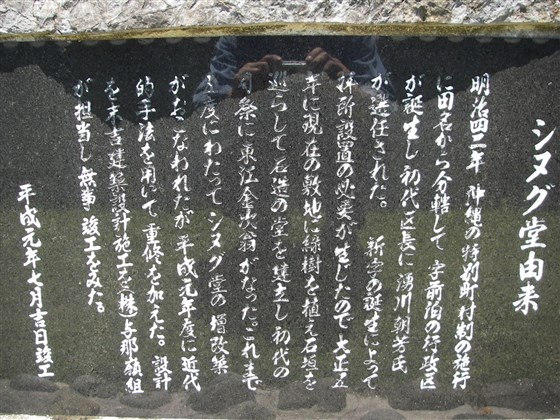 シヌグ堂由来
明治四二年 沖縄の特別町村制の施行
に田名から分轄して 字前泊の行政区
が誕生し初代区長に 湧川朝芳氏
が選任された。 新字の誕生によって
拝所設置の必要が生じたので 大正五
年に現在の敷地に緑樹を植え石垣を
巡らして石造の堂を建立し 初代の
司祭に東江金次翁がなった。これまで
度にわたってシヌグ堂の増改築
がおこなわれたが 平成元年度に近代
的手法を用いて 重修を加えた。設計
を末吉建築設計 施工を(株)与那嶺組
が担当し無事竣工をみた。
平成元年七月吉日竣工